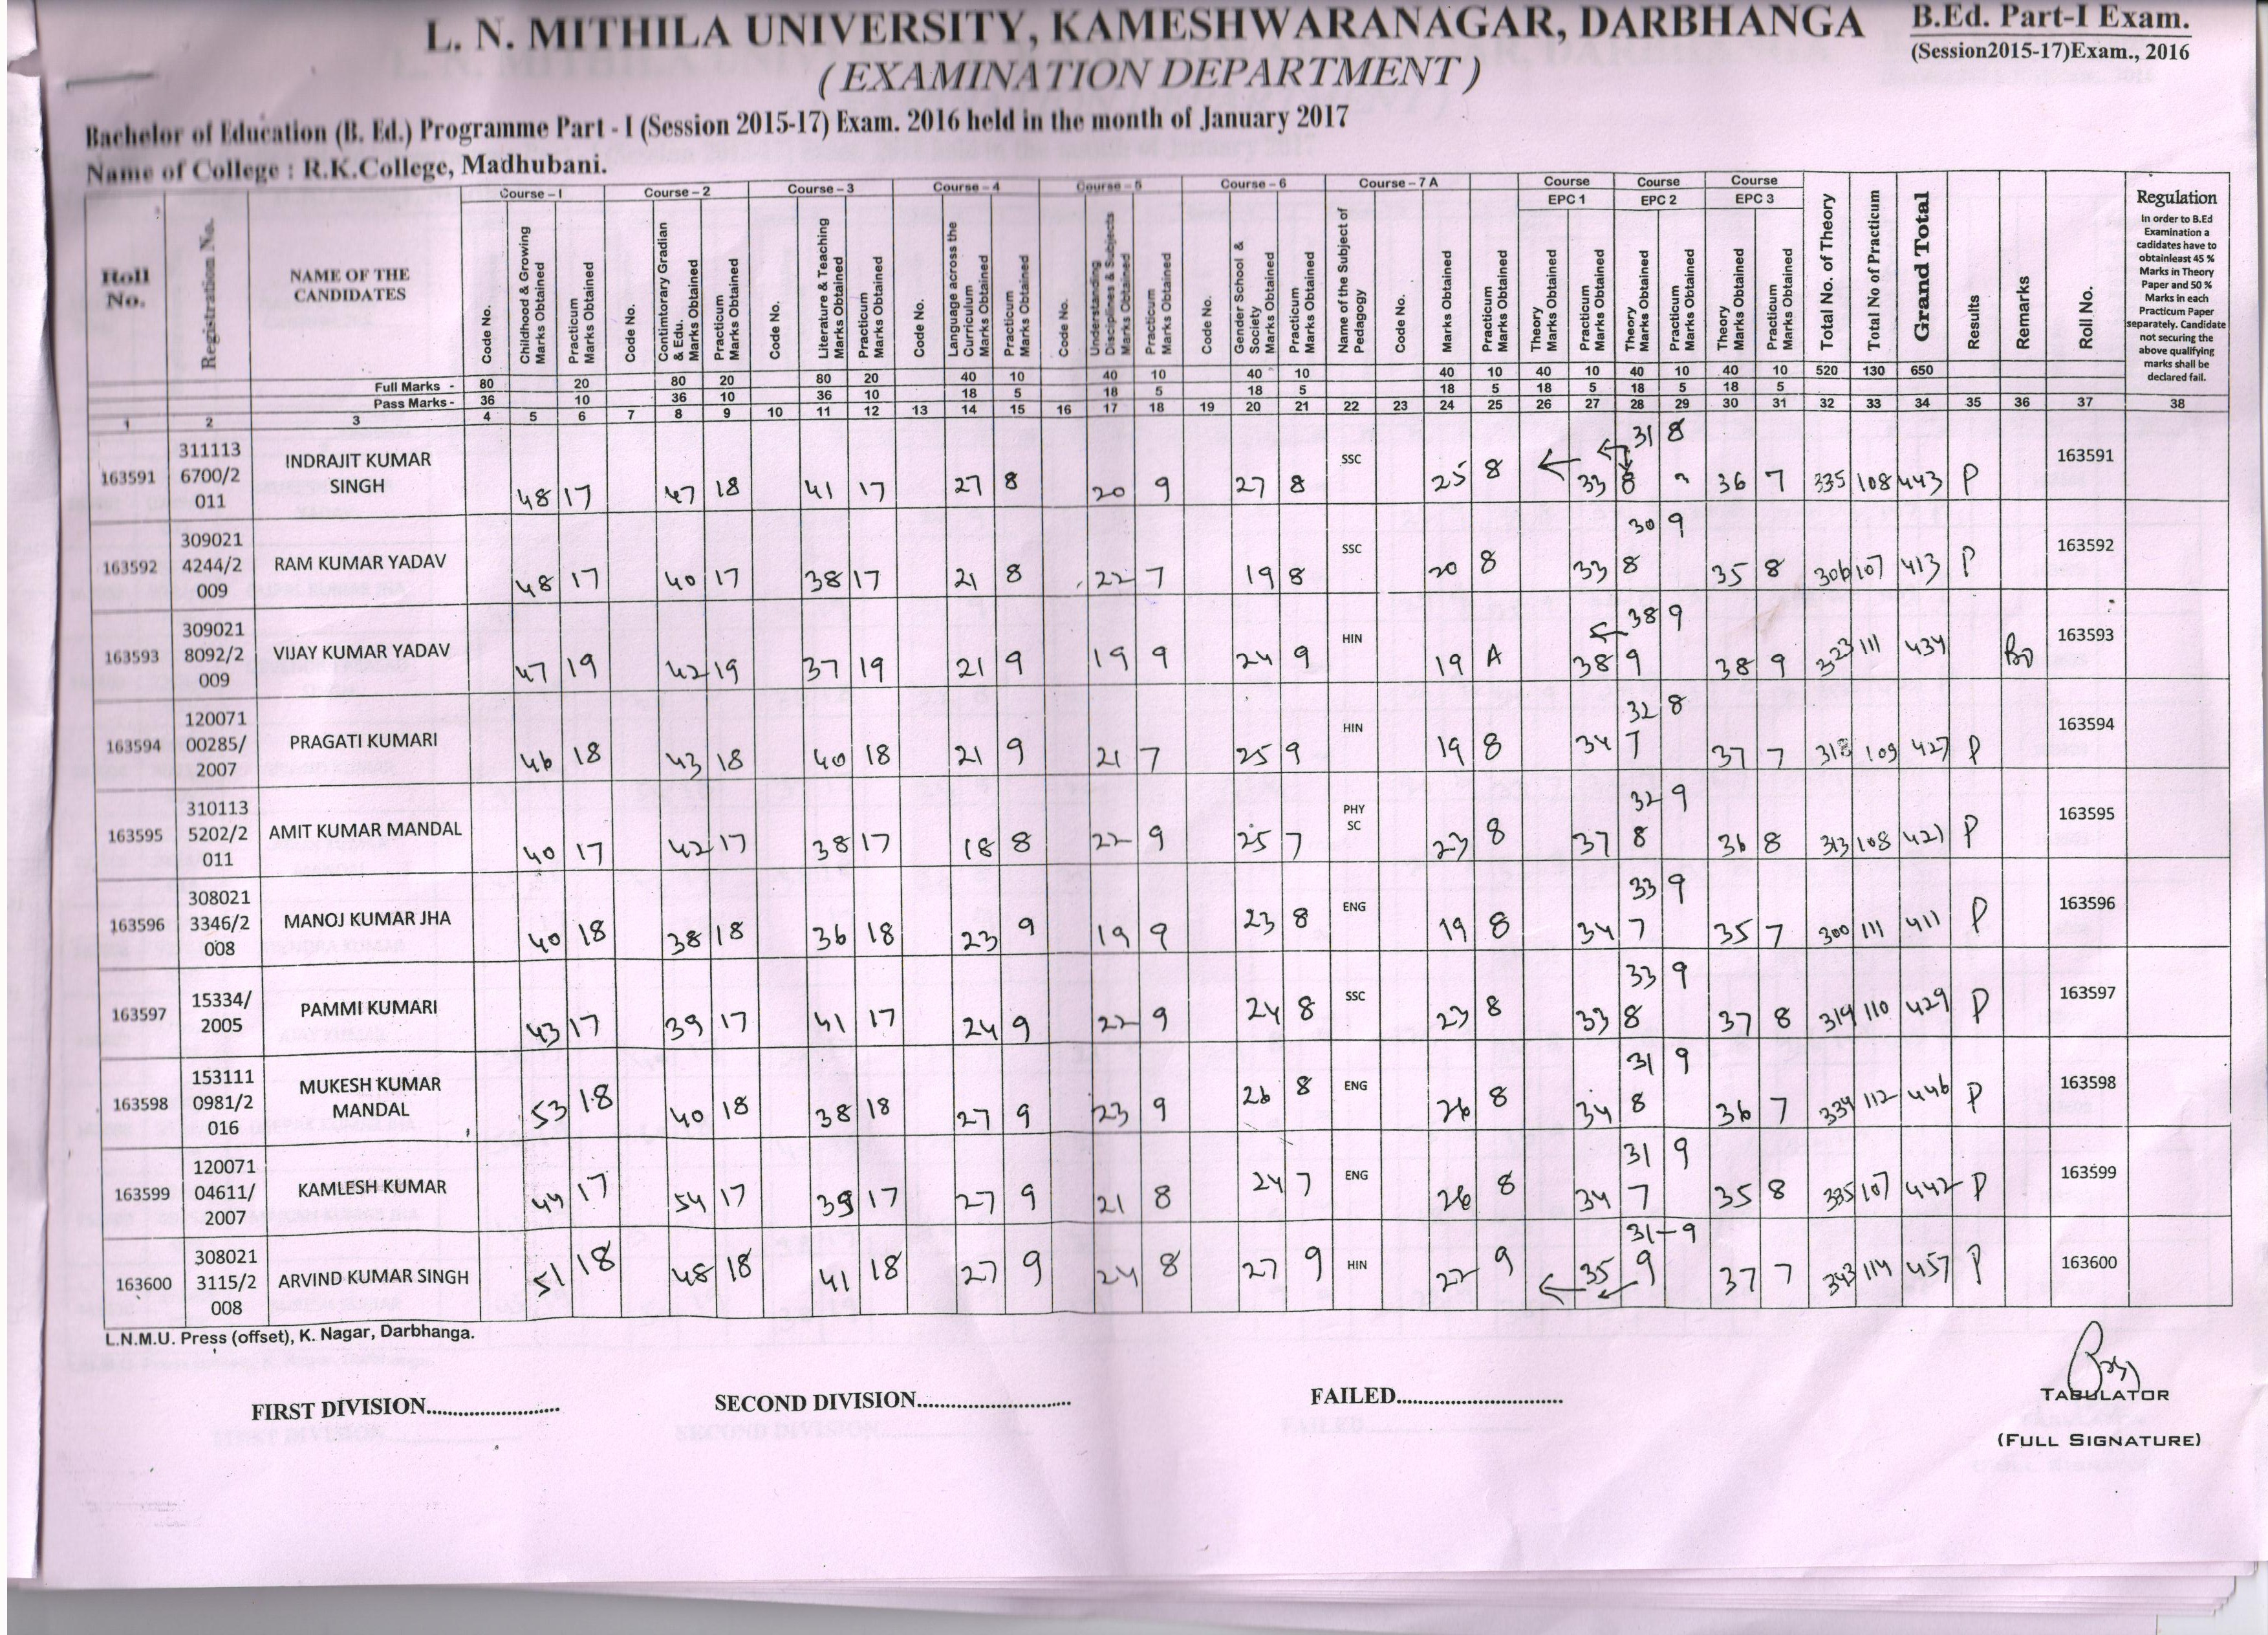 L. N. MITHILA UNIVERSITY, KAMESHWARANAGAR, DARBHANGA
B.Ed. Part-I Exam.
(Session2015-17)Exam., 2016
( EXAMINATION DEPARTMENT )
Bachelor of Education (B. Ed.) Programme Part - I (Session 2015-17) Exam. 2016 held in the month of January 2017
Name of College : R.K.College, Madhubani.
Course – I Course – 2 Course – 3 Course – 4 Course – 5 Course – 6 Course – 7 A Course Course Course
EPC 1 EPC 2 EPC 3
Roll No.
Registration No.
NAME OF THE
CANDIDATES
Code No.
Childhood & Growing
Marks Obtained
Practicum
Marks Obtained
Code No.
Contimtorary Gradian
& Edu.
Marks Obtained
Practicum
Marks Obtained
Code No.
Literature & Teaching
Marks Obtained
Practicum
Marks Obtained
Code No.
Language across the
Curriculum
Marks Obtained
Practicum
Marks Obtained
Code No.
Understanding
Disciplines & Subjects
Marks Obtained
Practicum
Marks Obtained
Code No.
Gender School &
Society
Marks Obtained
Practicum
Marks Obtained
Name of the Subject of
Pedagogy
Code No.
Marks Obtained
Practicum
Marks Obtained
Theory
Marks Obtained
Practicum
Marks Obtained
Theory
Marks Obtained
Practicum
Marks Obtained
Theory
Marks Obtained
Practicum
Marks Obtained
Total No. of Theory
Total No of Practicum
Grand Total
Results
Remarks
Roll No.
Regulation
In order to B.Ed
Examination a
cadidates have to
obtainleast 45 %
Marks in Theory
Paper and 50 %
Marks in each
Practicum Paper
separately. Candidate
not securing the
above qualifying
marks shall be
declared fail.
Full Marks - 80 20 80 20 80 20 40 10 40 10 40 10 40 10 40 10 40 10 40 10 520 130 650
Pass Marks - 36 10 36 10 36 10 18 5 18 5 18 5 18 5 18 5 18 5 18 5
1 2 3 4 5 6 7 8 9 10 11 12 13 14 15 16 17 18 19 20 21 22 23 24 25 26 27 28 29 30 31 32 33 34 35 36 37 38
31 8
163591 311113 6700/2 011 INDRAJIT KUMAR SINGH 48 17 47 18 41 17 27 8 20 9 27 8 SSC 25 8 33 8 36 7 335 108 443 P 163591
30 9
163592 309021 4244/2 009 RAM KUMAR YADAV 48 17 40 17 38 17 21 8 22 7 19 8 SSC 20 8 33 8 35 8 306 107 413 P 163592
38 9
163593 309021 8092/2 009 VIJAY KUMAR YADAV 47 19 42 19 37 19 21 9 19 9 24 9 HIN 19 A 38 9 38 9 323 111 434 163593
32 8
163594 120071 00285/ 2007 PRAGATI KUMARI 46 18 43 18 40 18 21 9 21 7 25 9 HIN 19 8 34 7 37 7 318 109 427 P 163594
32 9
163595 310113 5202/2 011 AMIT KUMAR MANDAL 40 17 42 17 38 17 18 8 22 9 25 7 PHY SC 23 8 37 8 36 8 313 108 421 P 163595
33 9
163596 308021 3346/2 008 MANOJ KUMAR JHA 40 18 38 18 36 18 23 9 19 9 23 8 ENG 19 8 34 7 35 7 300 111 411 P 163596
33 9
163597 15334/ 2005 PAMMI KUMARI 43 17 39 17 41 17 24 9 22 9 24 8 SSC 23 8 33 8 37 8 319 110 429 P 163597
31 9
163598 153111 0981/2 016 MUKESH KUMAR MANDAL 53 18 40 18 38 18 27 9 23 9 26 8 ENG 26 8 34 8 36 7 334 112 446 P 163598
31 9
163599 120071 04611/ 2007 KAMLESH KUMAR 44 17 54 17 39 17 27 9 21 8 24 7 ENG 26 8 34 7 35 8 335 107 442 P 163599
31-9
163600 308021 3115/2 008 ARVIND KUMAR SINGH 51 18 48 18 41 18 27 9 24 8 27 9 HIN 22 9 35 9 37 7 343 114 457 P 163600
L.N.M.U. Press (offset), K. Nagar, Darbhanga.
FIRST DIVISION........................ SECOND DIVISION............................ FAILED..............................
TABULATOR
(FULL SIGNATURE)